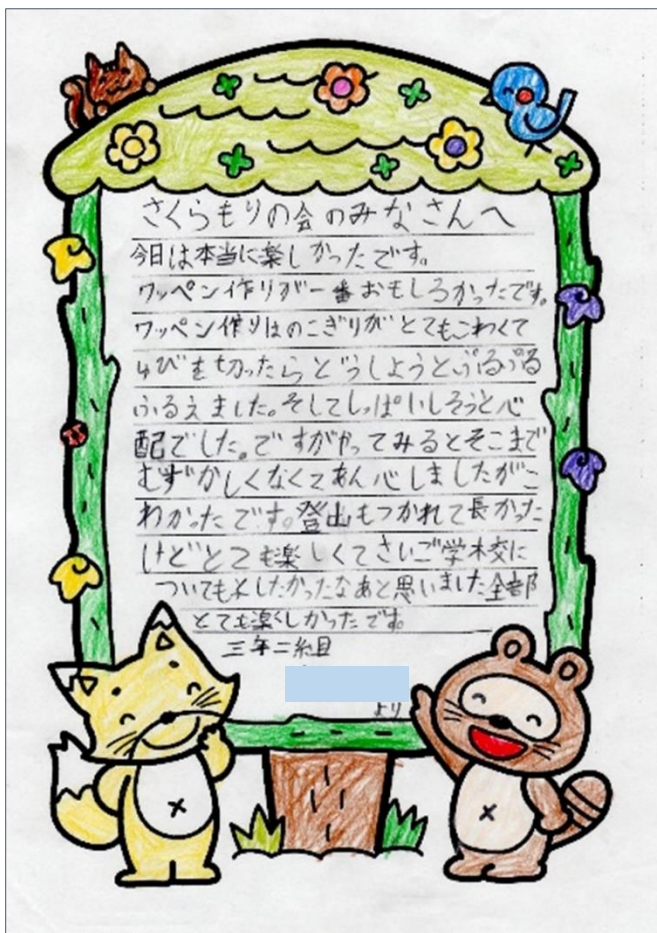 さくらもりの会のみなさんへ
今日は本当に楽しかったです。
ワッペン作りが一番おもしろかったです。
ワッペン作りはのこぎりがとてもこわくて
ゆびを切ったらどうしようとぷるぷる
ふるえました。そしてしっぱいしそうと心
配でした。ですがやってみるとそこまで
むずかしくなくてあん心しましたがこ
わかったです。登山もつかれて長かった
けどとても楽しくてさいご学校に
ついても したかったなあと思いました全部
とても楽しかったです。
三年二組
より